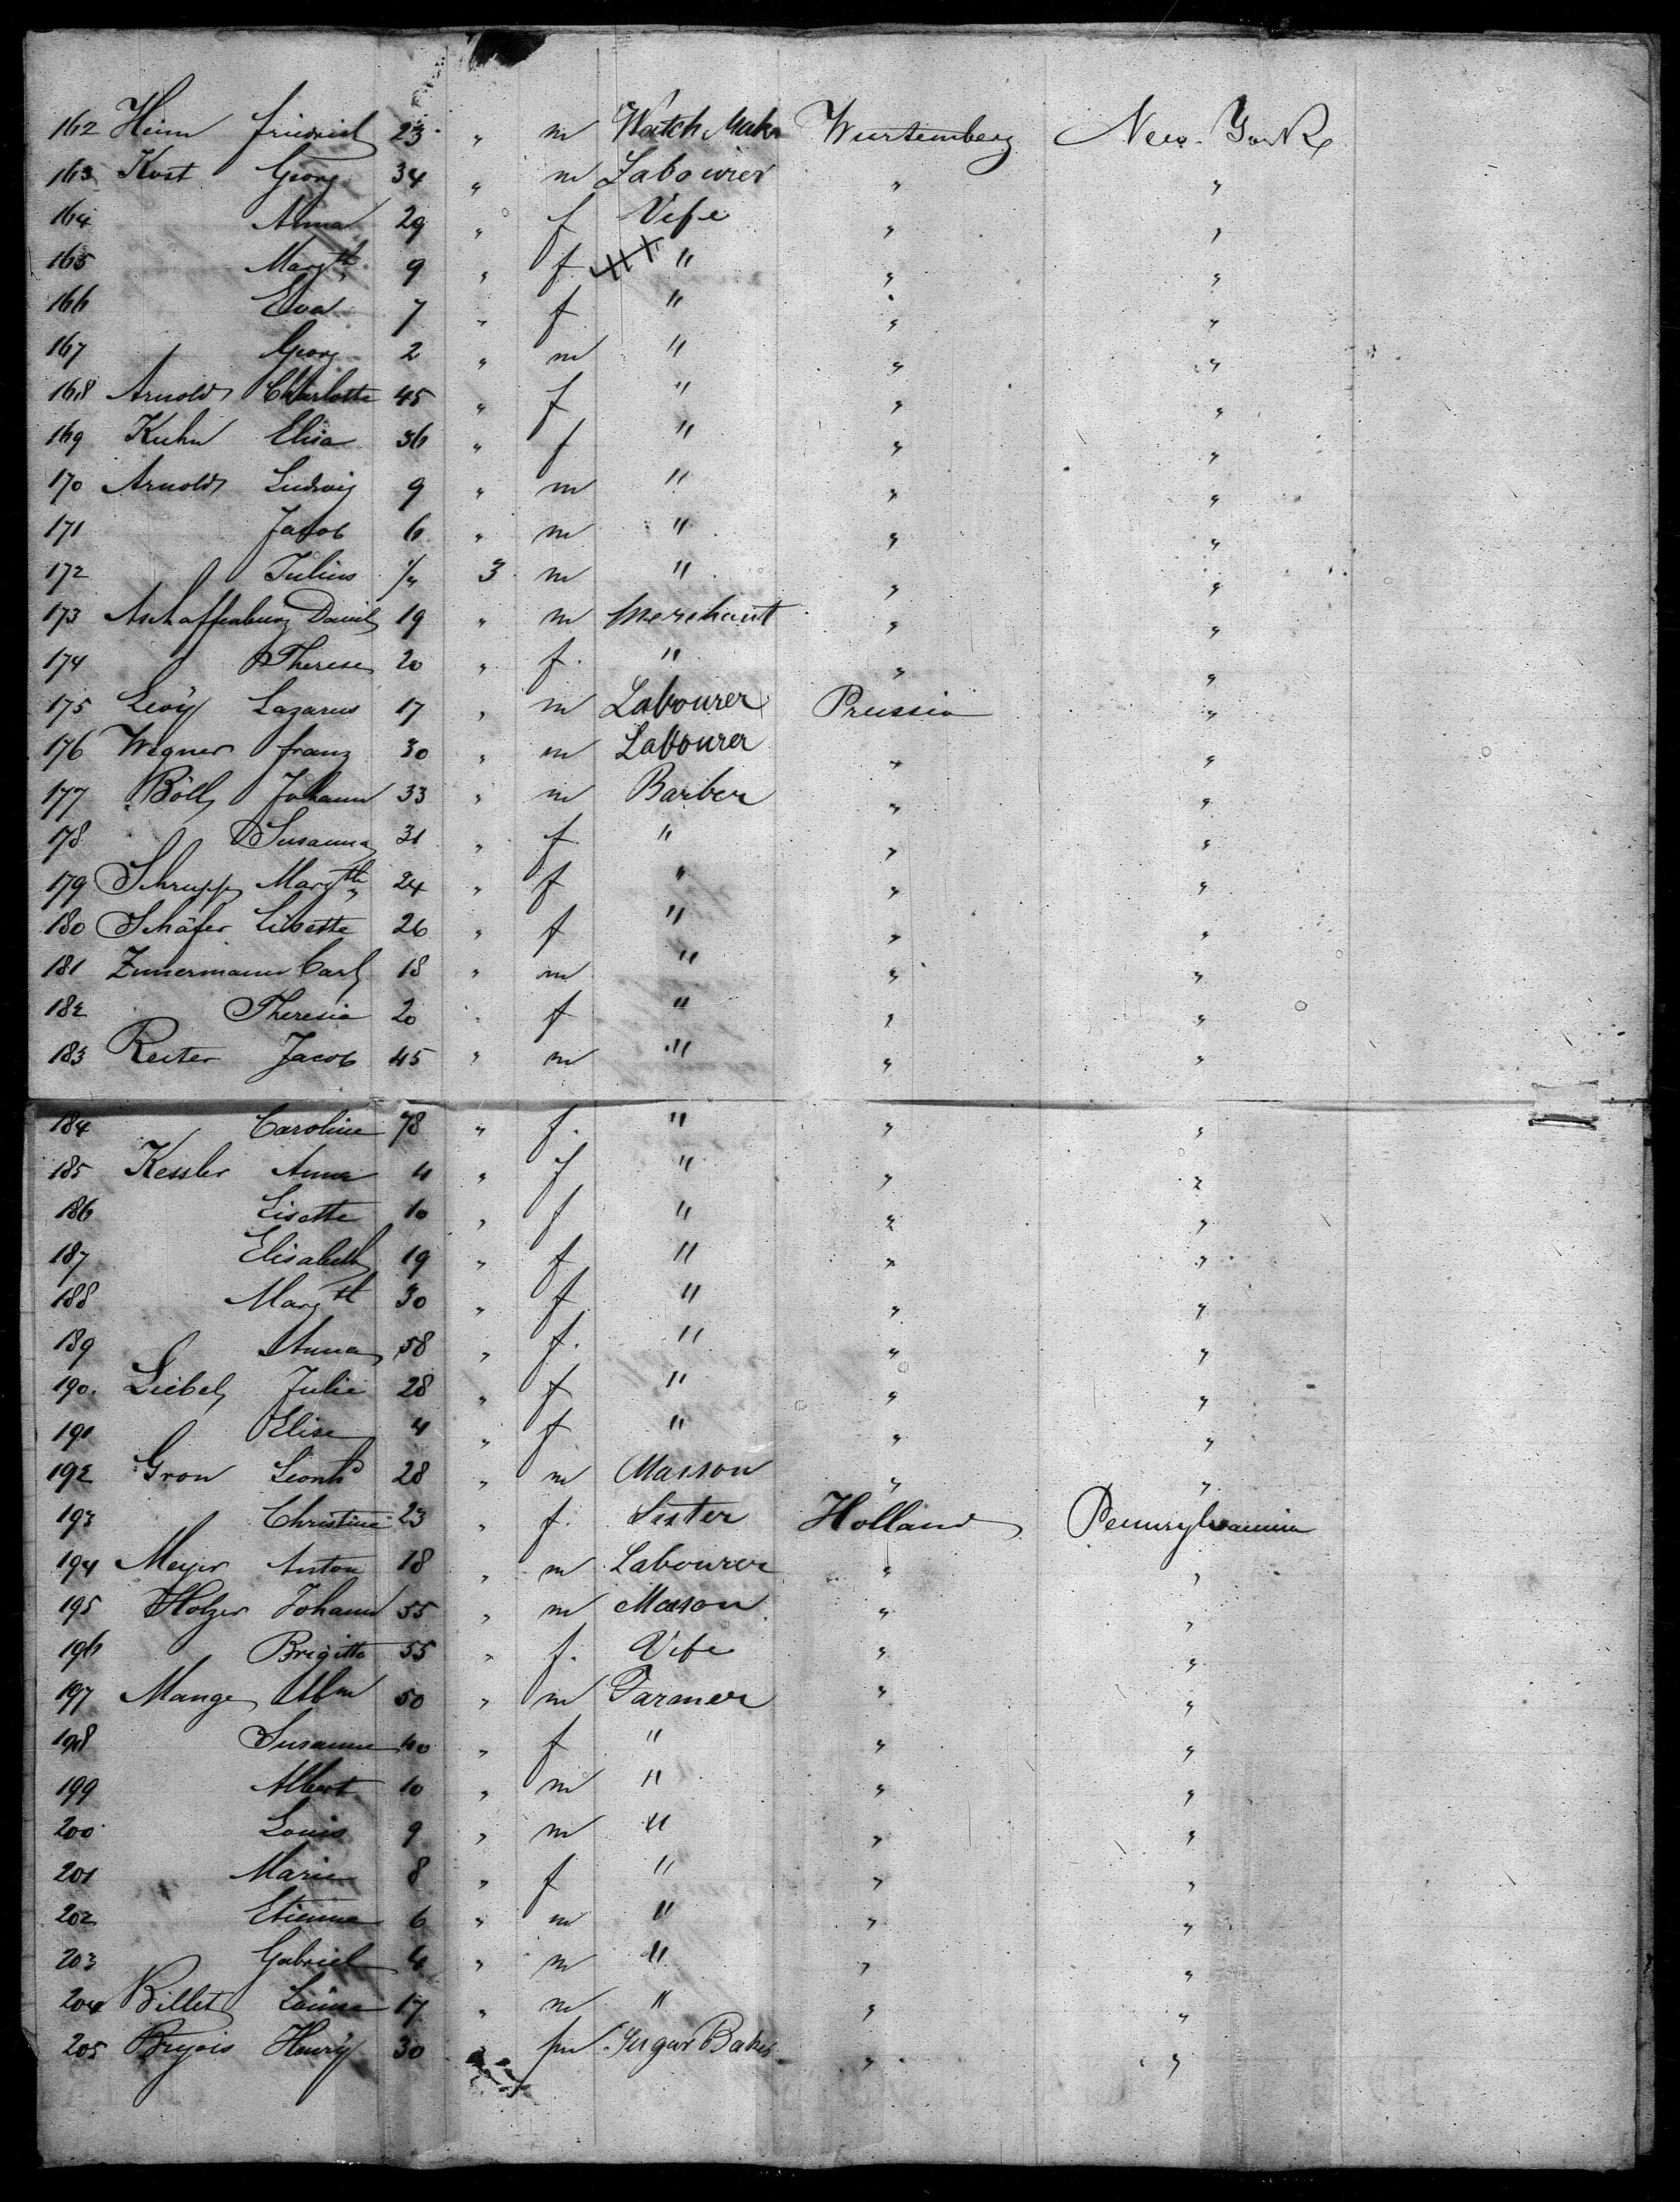 162 Heim Friedrich 23 " m Watch Maker Wurtemberg New York
163 Kost Georg 34 " m Labourer " "
164 Anna 29 " f Vife " "
165 Margth 9 " f " " "
166 Eva 7 " f " " "
167 Georg 2 " m " " "
168 Arnold Charlotte 45 " f " " "
169 Kuhn Elisa 36 " f " " "
170 Arnold Ludwig 9 " m " " "
171 Jacob 6 " m " " "
172 Julius 1/4 3 m " " "
173 Aschaffenburg David 19 " m Merchant " "
174 Therese 20 " f. " " "
175 Levÿ Lazarus 17 " m Labourer Prussia "
176 Wegner Franz 30 " m Labourer " "
177 Böll Johann 33 " m Barber " "
178 Susanna 31 " f " " "
179 Schrupp Margth 24 " f " " "
180 Schäfer Lisette 26 " f " " "
181 Zimermann Carl 18 " m " " "
182 Theresia 20 " f " " "
183 Reiter Jacob 45 " m " " "
184 Caroline 78 " f. " " "
185 Kessler Anna 4 " f " " "
186 Lisette 10 " f " " "
187 Elisabeth 19 " f " " "
188 Margth 30 " f " " "
189 Anna 58 " f. " " "
190. Liebel Julie 28 " f " " "
191 Elise 4 " f " " "
192 Gron Leonhd 28 " m Masson " "
193 Christine 23 " f. Sister Holland Pennsylvannia
194 Meyer Anton 18 " m Labourer " "
195 Holzer Johann 55 " m Mason " "
196 Brigitte 55 " f. Vife " "
197 Mange Abm 50 " m Farmer " "
198 Susanne 40 " f " " "
199 Albert 10 " m " " "
200 Louis 9 " m " " "
201 Marie 8 " f " " "
202 Etienne 6 " m " " "
203 Gabriel 4 " m " " "
204 Billet Louise 17 " m " " "
205 Henrÿ 30 m Sugar Baker " "